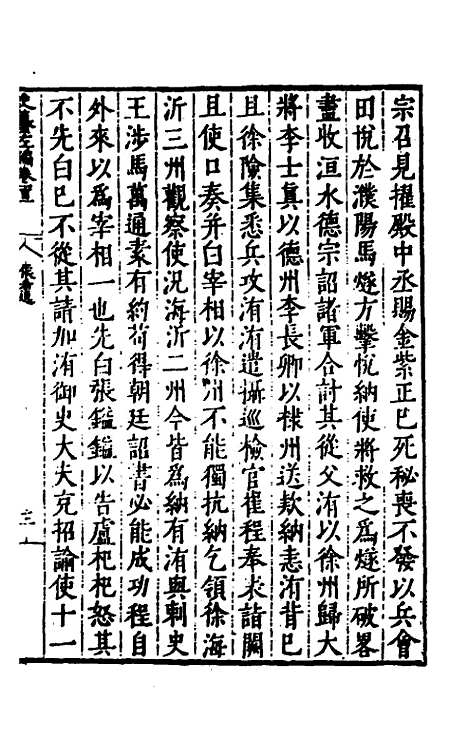 宗召見擢殿中丞賜金紫正巳死秘喪不發以兵會
田悅於濮陽馬燧方擊悅納使將救之爲燧所破畧
盡收洹水德宗詔諸軍合討其從父洧以徐州歸大
將李士眞以德州李長卿以棣州送款納恚洧背巳
且徐險集悉兵攻洧洧遣攝巡檢官崔程奉表詣闕
且使口奏幷白宰相以徐州不能獨抗納乞領徐海
沂三州觀察使況海沂二州今皆爲納有洧與刺史
王涉馬萬通素有約荷得朝廷詔書必能成功程自
外來以爲宰相一也先白張鎰鎰以告盧杞杞怒其
不先白巳不從其請加洧御史大夫充招諭使十一